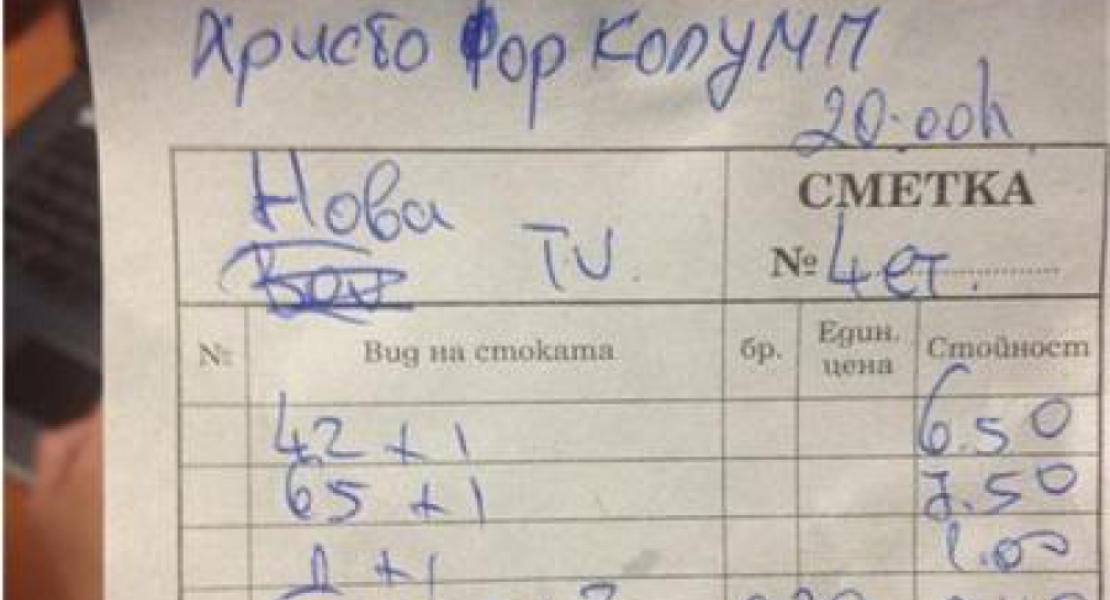 Христо Фор Колумп
20:00h
Нова TV.
СМЕТКА
№ 4 ет.
№ Вид на стоката бр. Един. цена Стойност
42 + 1 6.50
65 + 1 7.50
+1 1.00